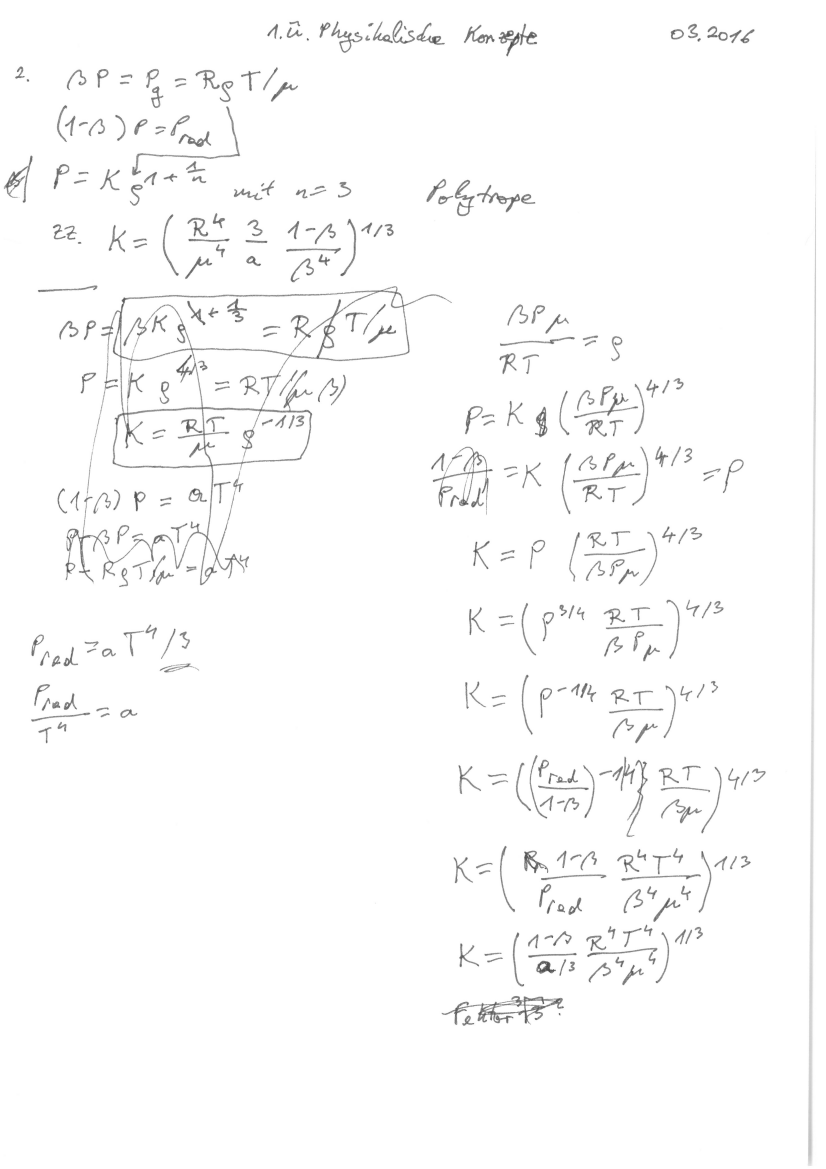 1. Ü. Physikalische Konzepte 03.2016
2. βP = P_g = RρT/μ
(1-β) P = P_rad
P = K ρ^{1+1/n} mit n = 3 Polytrope
zz. K = (R^4/μ^4 3/a (1-β)/β^4)^{1/3}
βP = βKρ^{1+1/3} = RρT/μ
P = K ρ^{4/3} = RT/(μβ)
K = RT/μ ρ^{-1/3}
(1-β) P = aT^4
P-βP = aT^4
P - RρT/μ = aT^4
P_rad = aT^4/3
P_rad/T^4 = a
βPμ/RT = ρ
P = K (βPμ/RT)^{4/3}
(1-β)/P_rad = K (βPμ/RT)^{4/3} = P
K = P (RT/βPμ)^{4/3}
K = (P^{3/4} RT/βPμ)^{4/3}
K = (P^{-1/4} RT/βμ)^{4/3}
K = ((P_rad/(1-β))^{-1/4} RT/βμ)^{4/3}
K = ((1-β)/P_rad R^4T^4/β^4μ^4)^{1/3}
K = ((1-β)/(a/3) R^4T^4/β^4μ^4)^{1/3}